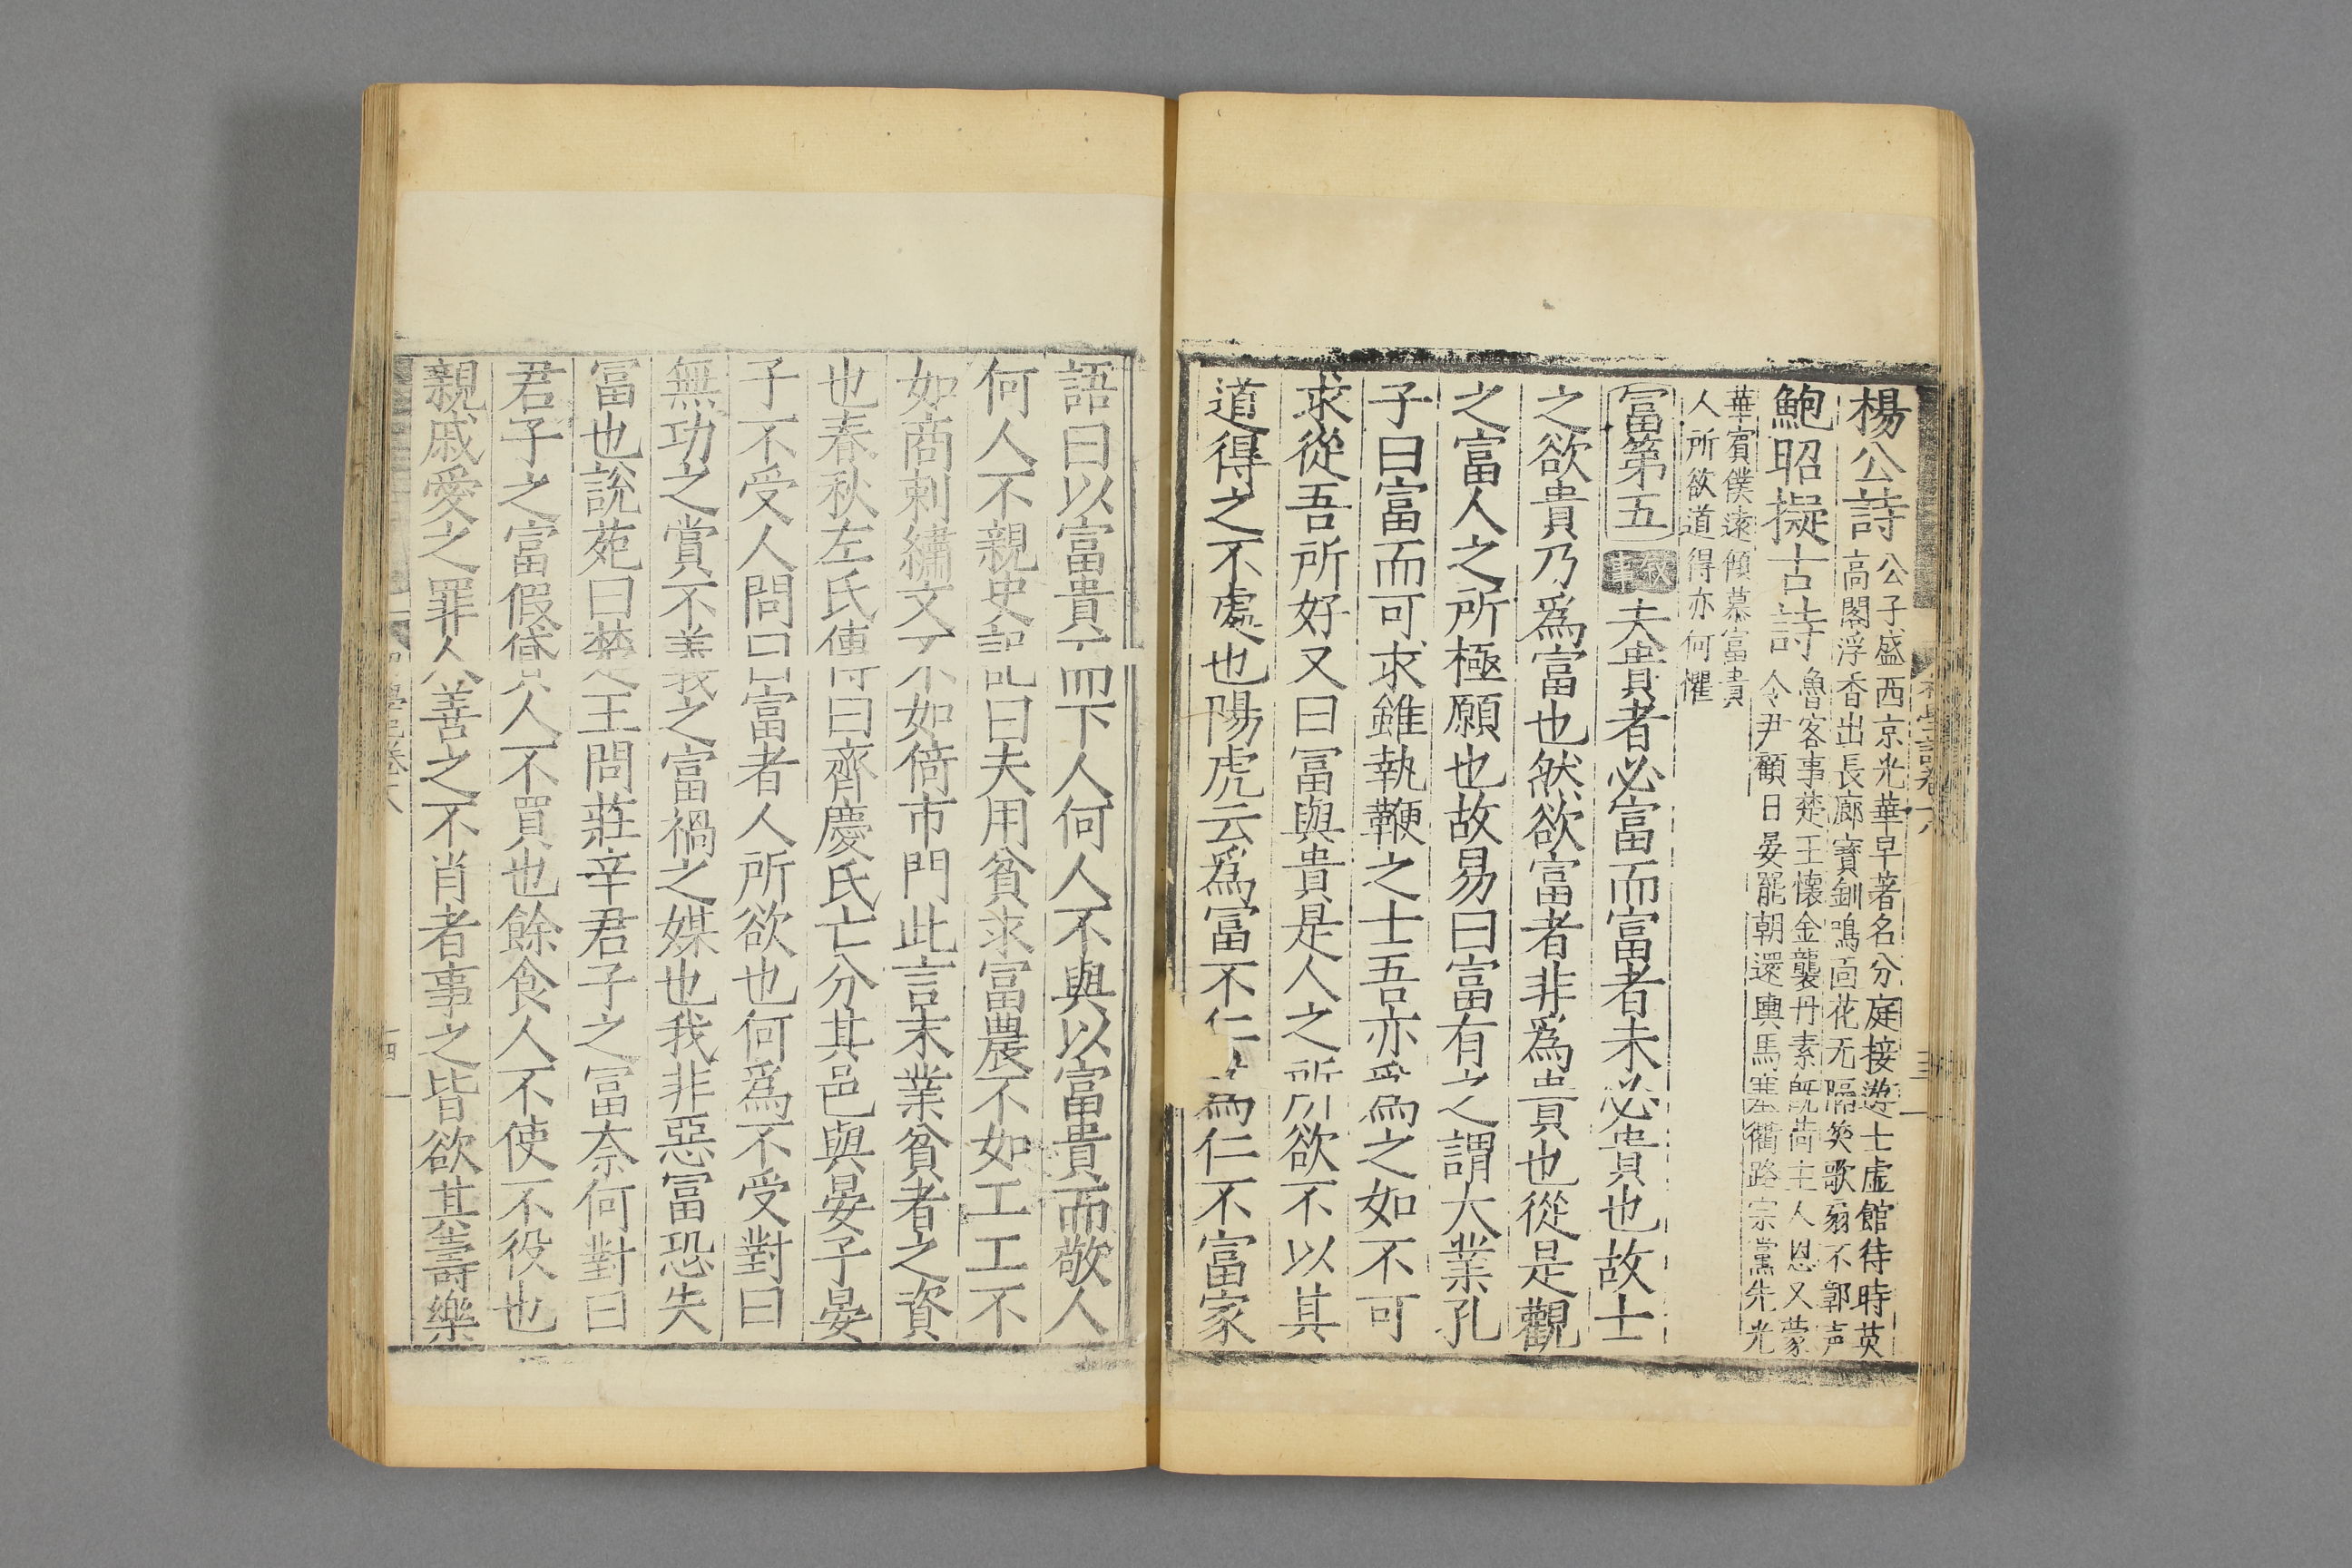 楊公詩公子盛西京光華早著名分庭接遊士虛館待時英
高閣浮香出長廊寳釧鳴面花无隔笑歌扇不鄣声
鮑昭擬古詩魯客事楚王懷金襲丹素旣荷主人恩又蒙
令尹顧日晏罷朝還輿馬塞衢路宗黨先光
華賔僕遠傾慕富貴
人所欲道得亦何懼
冨第五叙事夫貴者必富而富者未必貴也故士
之欲貴乃爲富也然欲富者非爲貴也從是觀
之富人之所極願也故易曰富有之謂大業孔
子曰富而可求雖執鞭之士吾亦爲之如不可
求從吾所好又曰冨與貴是人之所欲不以其
道得之不處也陽虎云爲富不仁爲仁不富家
語曰以富貴而下人何人不與以富貴而敬人
何人不親史記曰夫用貧求富農不如工工不
如商刺繡文不如倚市門此言末業貧者之資
也春秋左氏傳曰齊慶氏亡分其邑與晏子晏
子不受人問曰富者人所欲也何爲不受對曰
無功之賞不義之富禍之媒也我非惡冨恐失
冨也說苑曰楚王問莊辛君子之冨奈何對曰
君子之富假貸人不買也餘食人不使不役也
親戚愛之罪人善之不肖者事之皆欲其壽樂